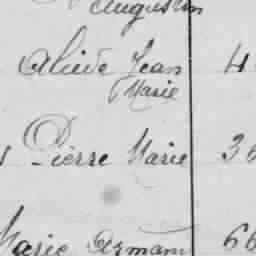 Augustin
Alide Jean 4
Marie
Pierre Marie 36
Marie Armam 66